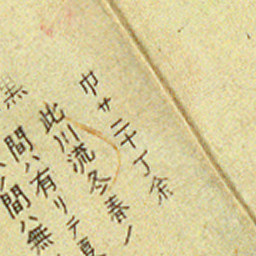 巾サ二十丁余
此川流冬春ノ
間ハ有リテ夏
間ハ無
黒